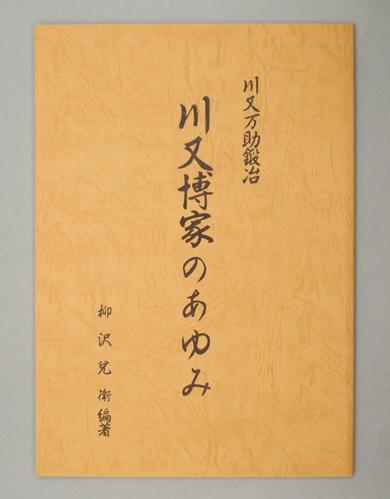 川又万助鍛冶
川又博家のあゆみ
柳沢兌衛編著